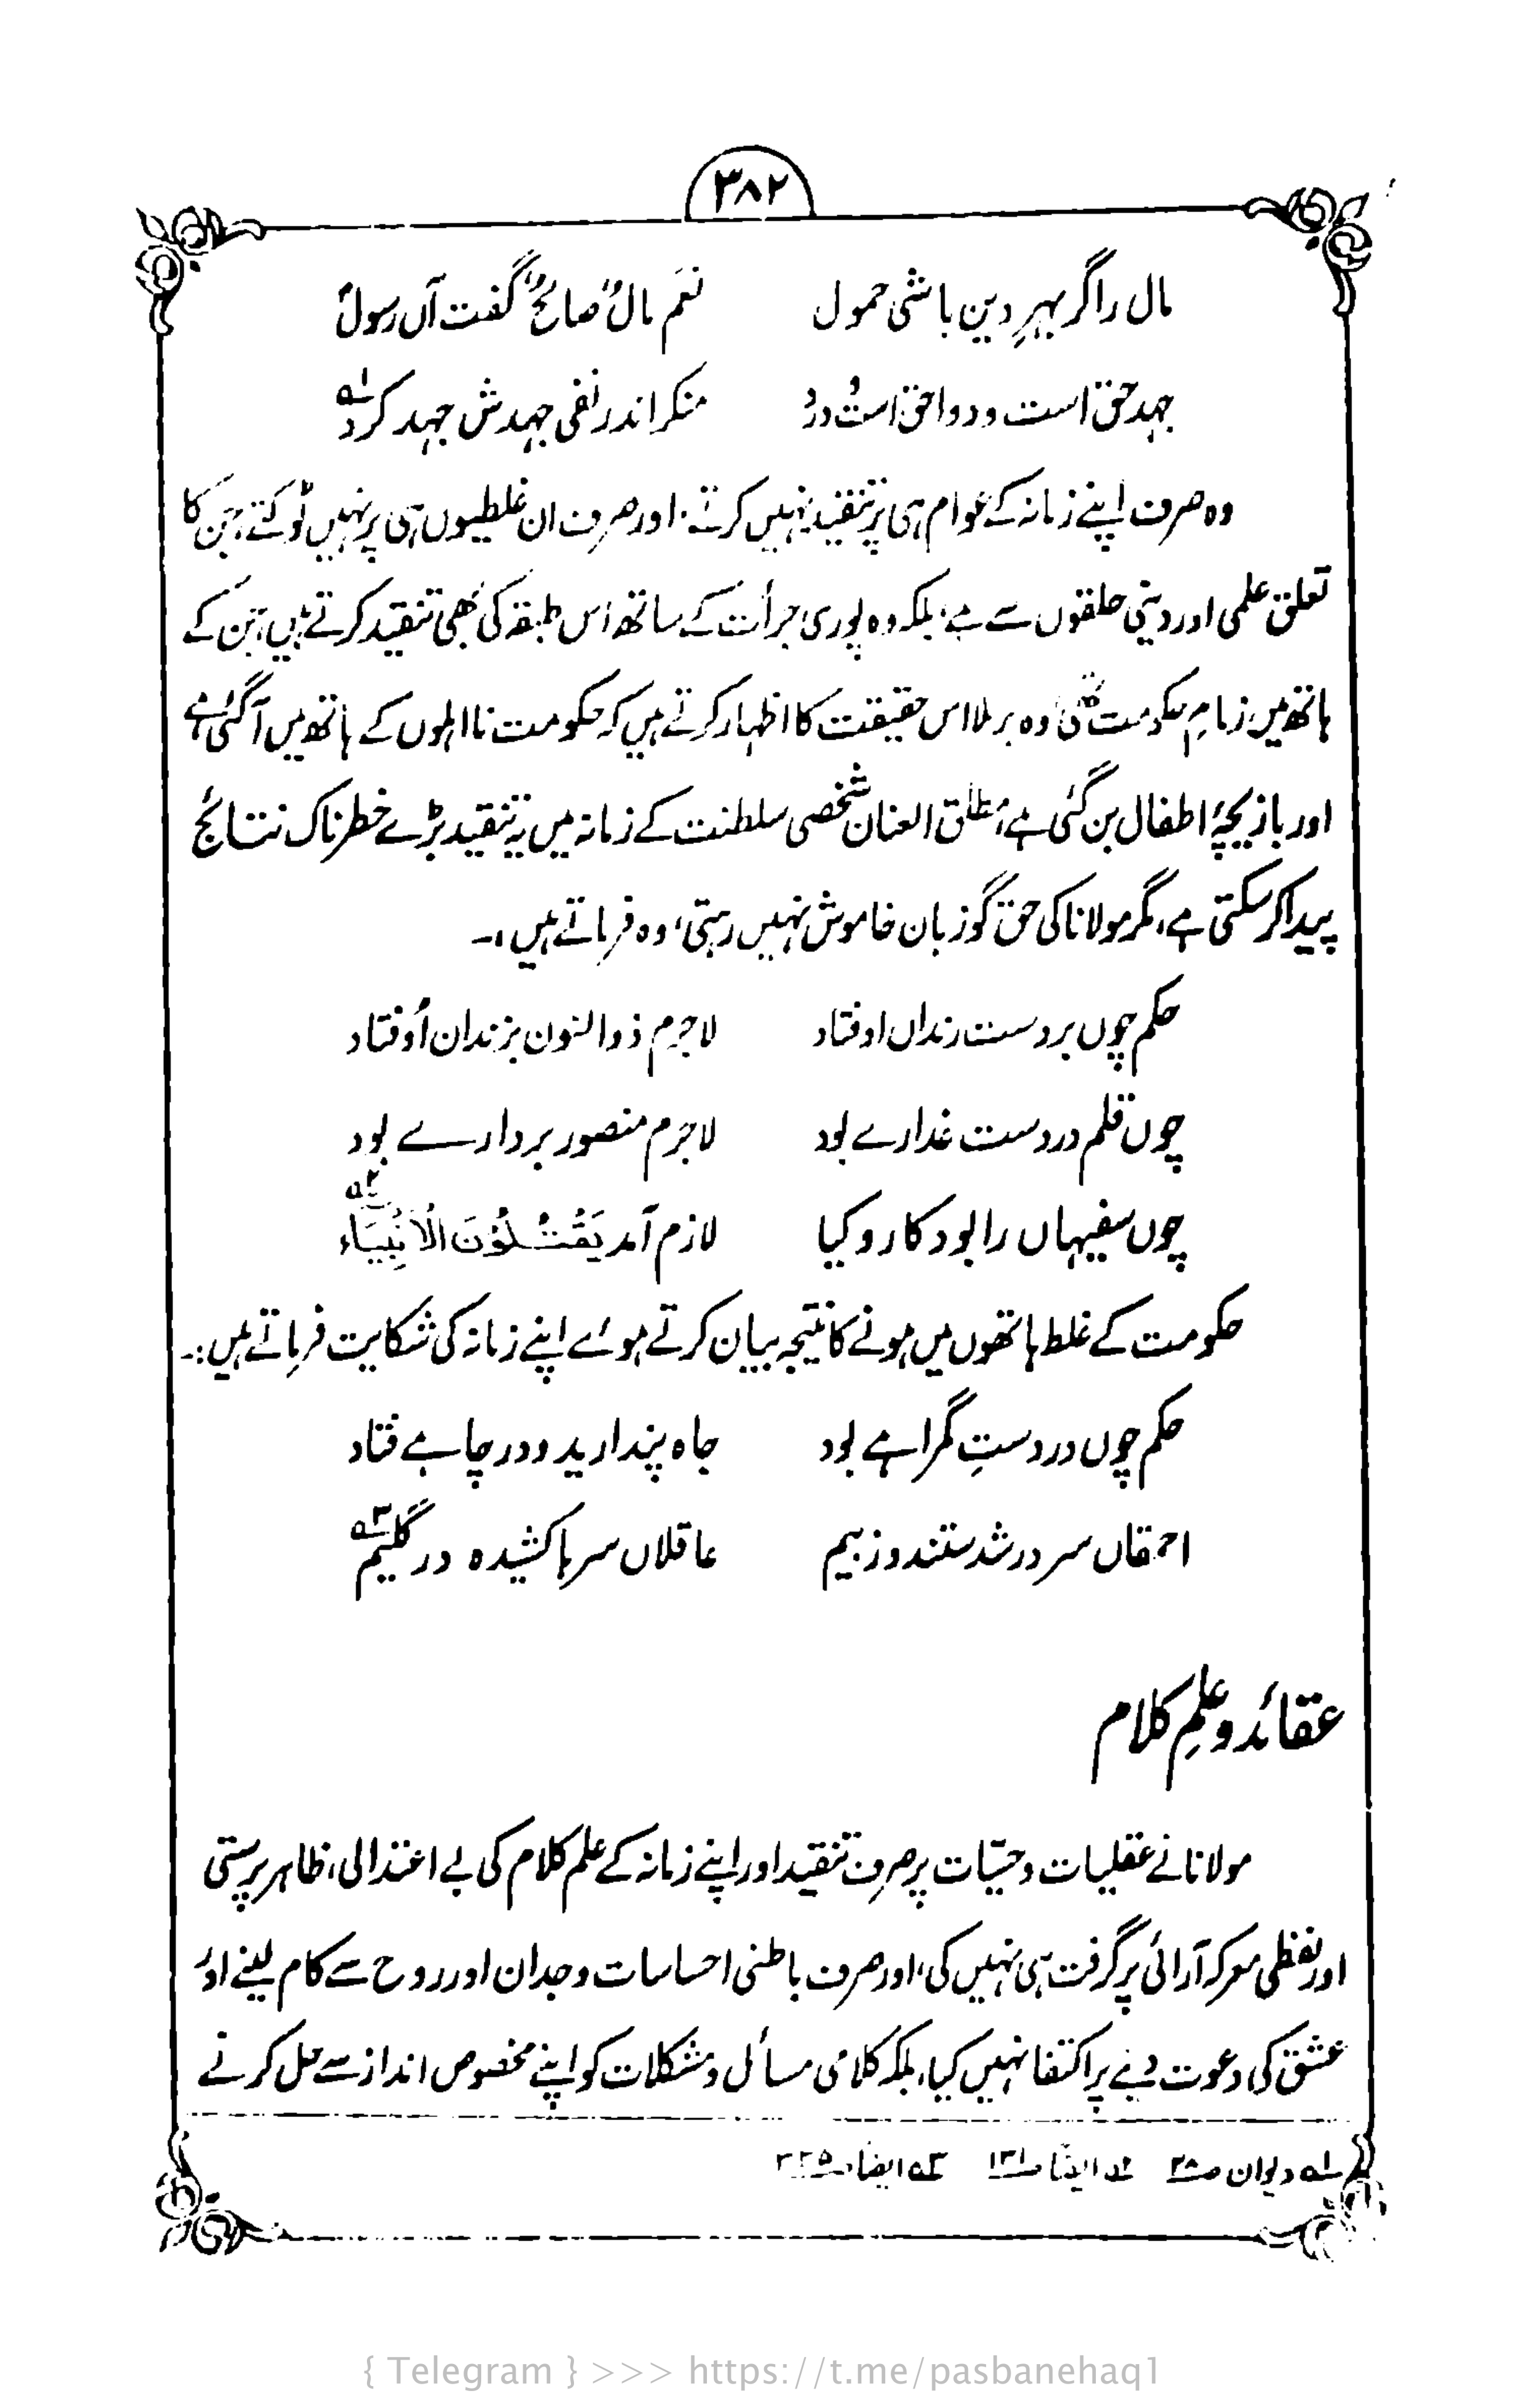 ۳۸۲
مال را گر بہرِ دین باشی حمول نعم مالٌ صالحٌ گفت آں رسولؐ
جہد حق است و دوا حق است و درد منکر اندر نفی جہدش جہد کرد ؎۱
وہ صرف اپنے زمانہ کے عوام ہی پر تنقید نہیں کرتے، اور صرف ان غلطیوں ہی پر نہیں ٹوکتے، جن کا
تعلق علمی اور دینی حلقوں سے ہے، بلکہ وہ پوری جرأت کے ساتھ اس طبقہ کی بھی تنقید کرتے ہیں، جن کے
ہاتھ میں زمامِ حکومت تھی، وہ برملا اس حقیقت کا اظہار کرتے ہیں کہ حکومت نااہلوں کے ہاتھ میں آگئی ہے
اور بازیچۂ اطفال بن گئی ہے، مطلق العنان شخصی سلطنت کے زمانہ میں یہ تنقید بڑے خطرناک نتائج
پیدا کر سکتی ہے، مگر مولانا کی حق گو زبان خاموش نہیں رہتی، وہ فرماتے ہیں :۔
حکم چوں بر دست رنداں اوفتاد لاجرم ذوالنون بزندان اُوفتاد
چوں قلم در دست غدارے بود لاجرم منصور بردارے بود
چوں سفیہاں را بود کار و کیا لازم آمد یَقْتُلُوْنَ الْاَنْبِیَاء ؎۲
حکومت کے غلط ہاتھوں میں ہونے کا نتیجہ بیان کرتے ہوئے اپنے زمانہ کی شکایت فرماتے ہیں :۔
حکم چوں در دستِ گمراہے بود جاہ پندارید و در چاہے فتاد
احمقاں سرور شدستند و زبیم عاقلاں سرہا کشیدہ در گلیم ؎۳
عقائد و علمِ کلام
مولانا نے عقلیات و حسّیات پر صرف تنقید اور اپنے زمانہ کے علم کلام کی بے اعتدالی، ظاہر پرستی
اور لفظی معرکہ آرائی پر گرفت ہی نہیں کی، اور صرف باطنی احساسات و جدان اور روح سے کام لینے اور
عشق کی دعوت دینے پر اکتفا نہیں کیا، بلکہ کلامی مسائل و مشکلات کو اپنے مخصوص انداز سے حل کرنے
؎۱ دیوان ص۳۸ ؎۲ ایضاً ص۱۳۱ ؎۳ ایضاً ص۳۳۵
{ Telegram } >>> https://t.me/pasbanehaq1